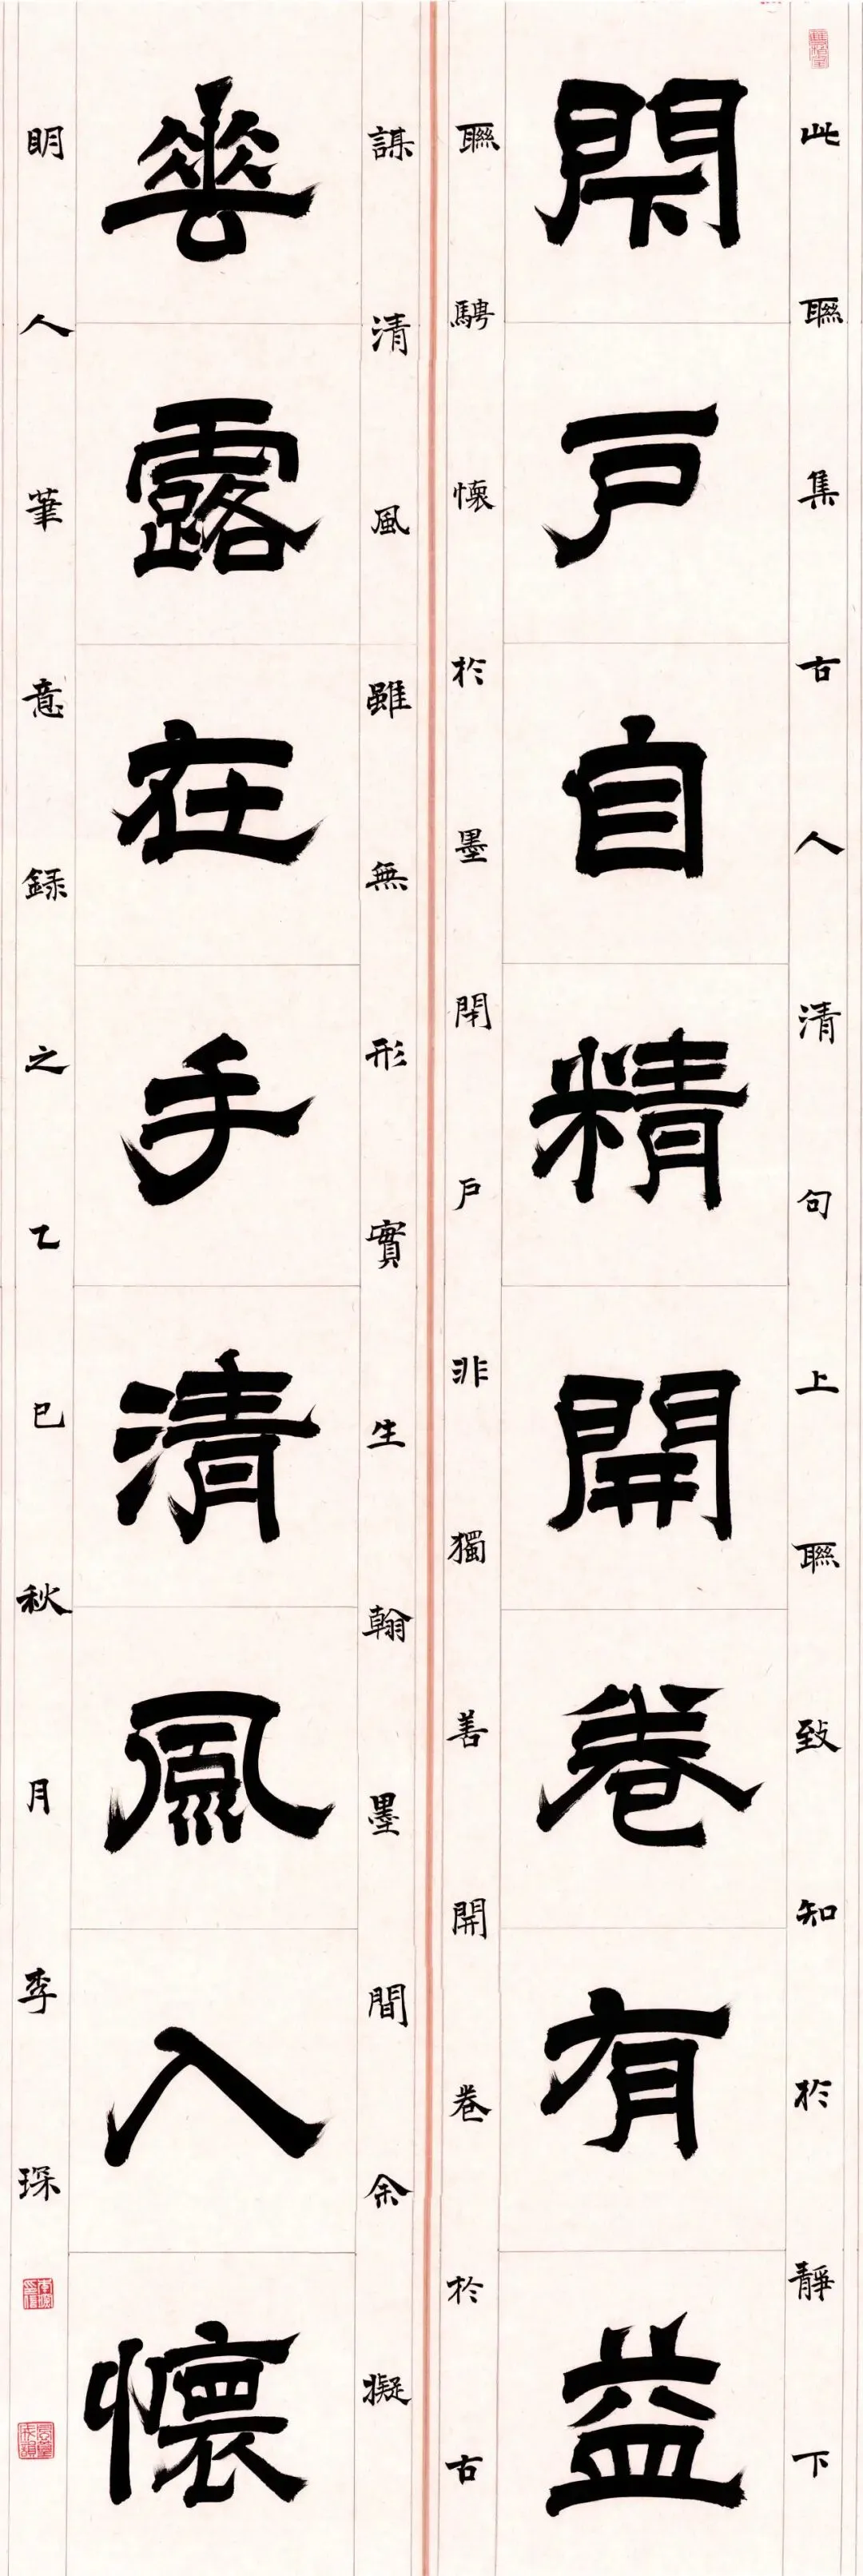 此聯集古人清句上聯致知於靜下
閇戶自精開卷有益
聯騁懷於墨閉戶非獨善開卷於古
謀清風雖無形實生翰墨間余擬
華露在手清風入懷
眀人筆意録之乙巳秋月李琛